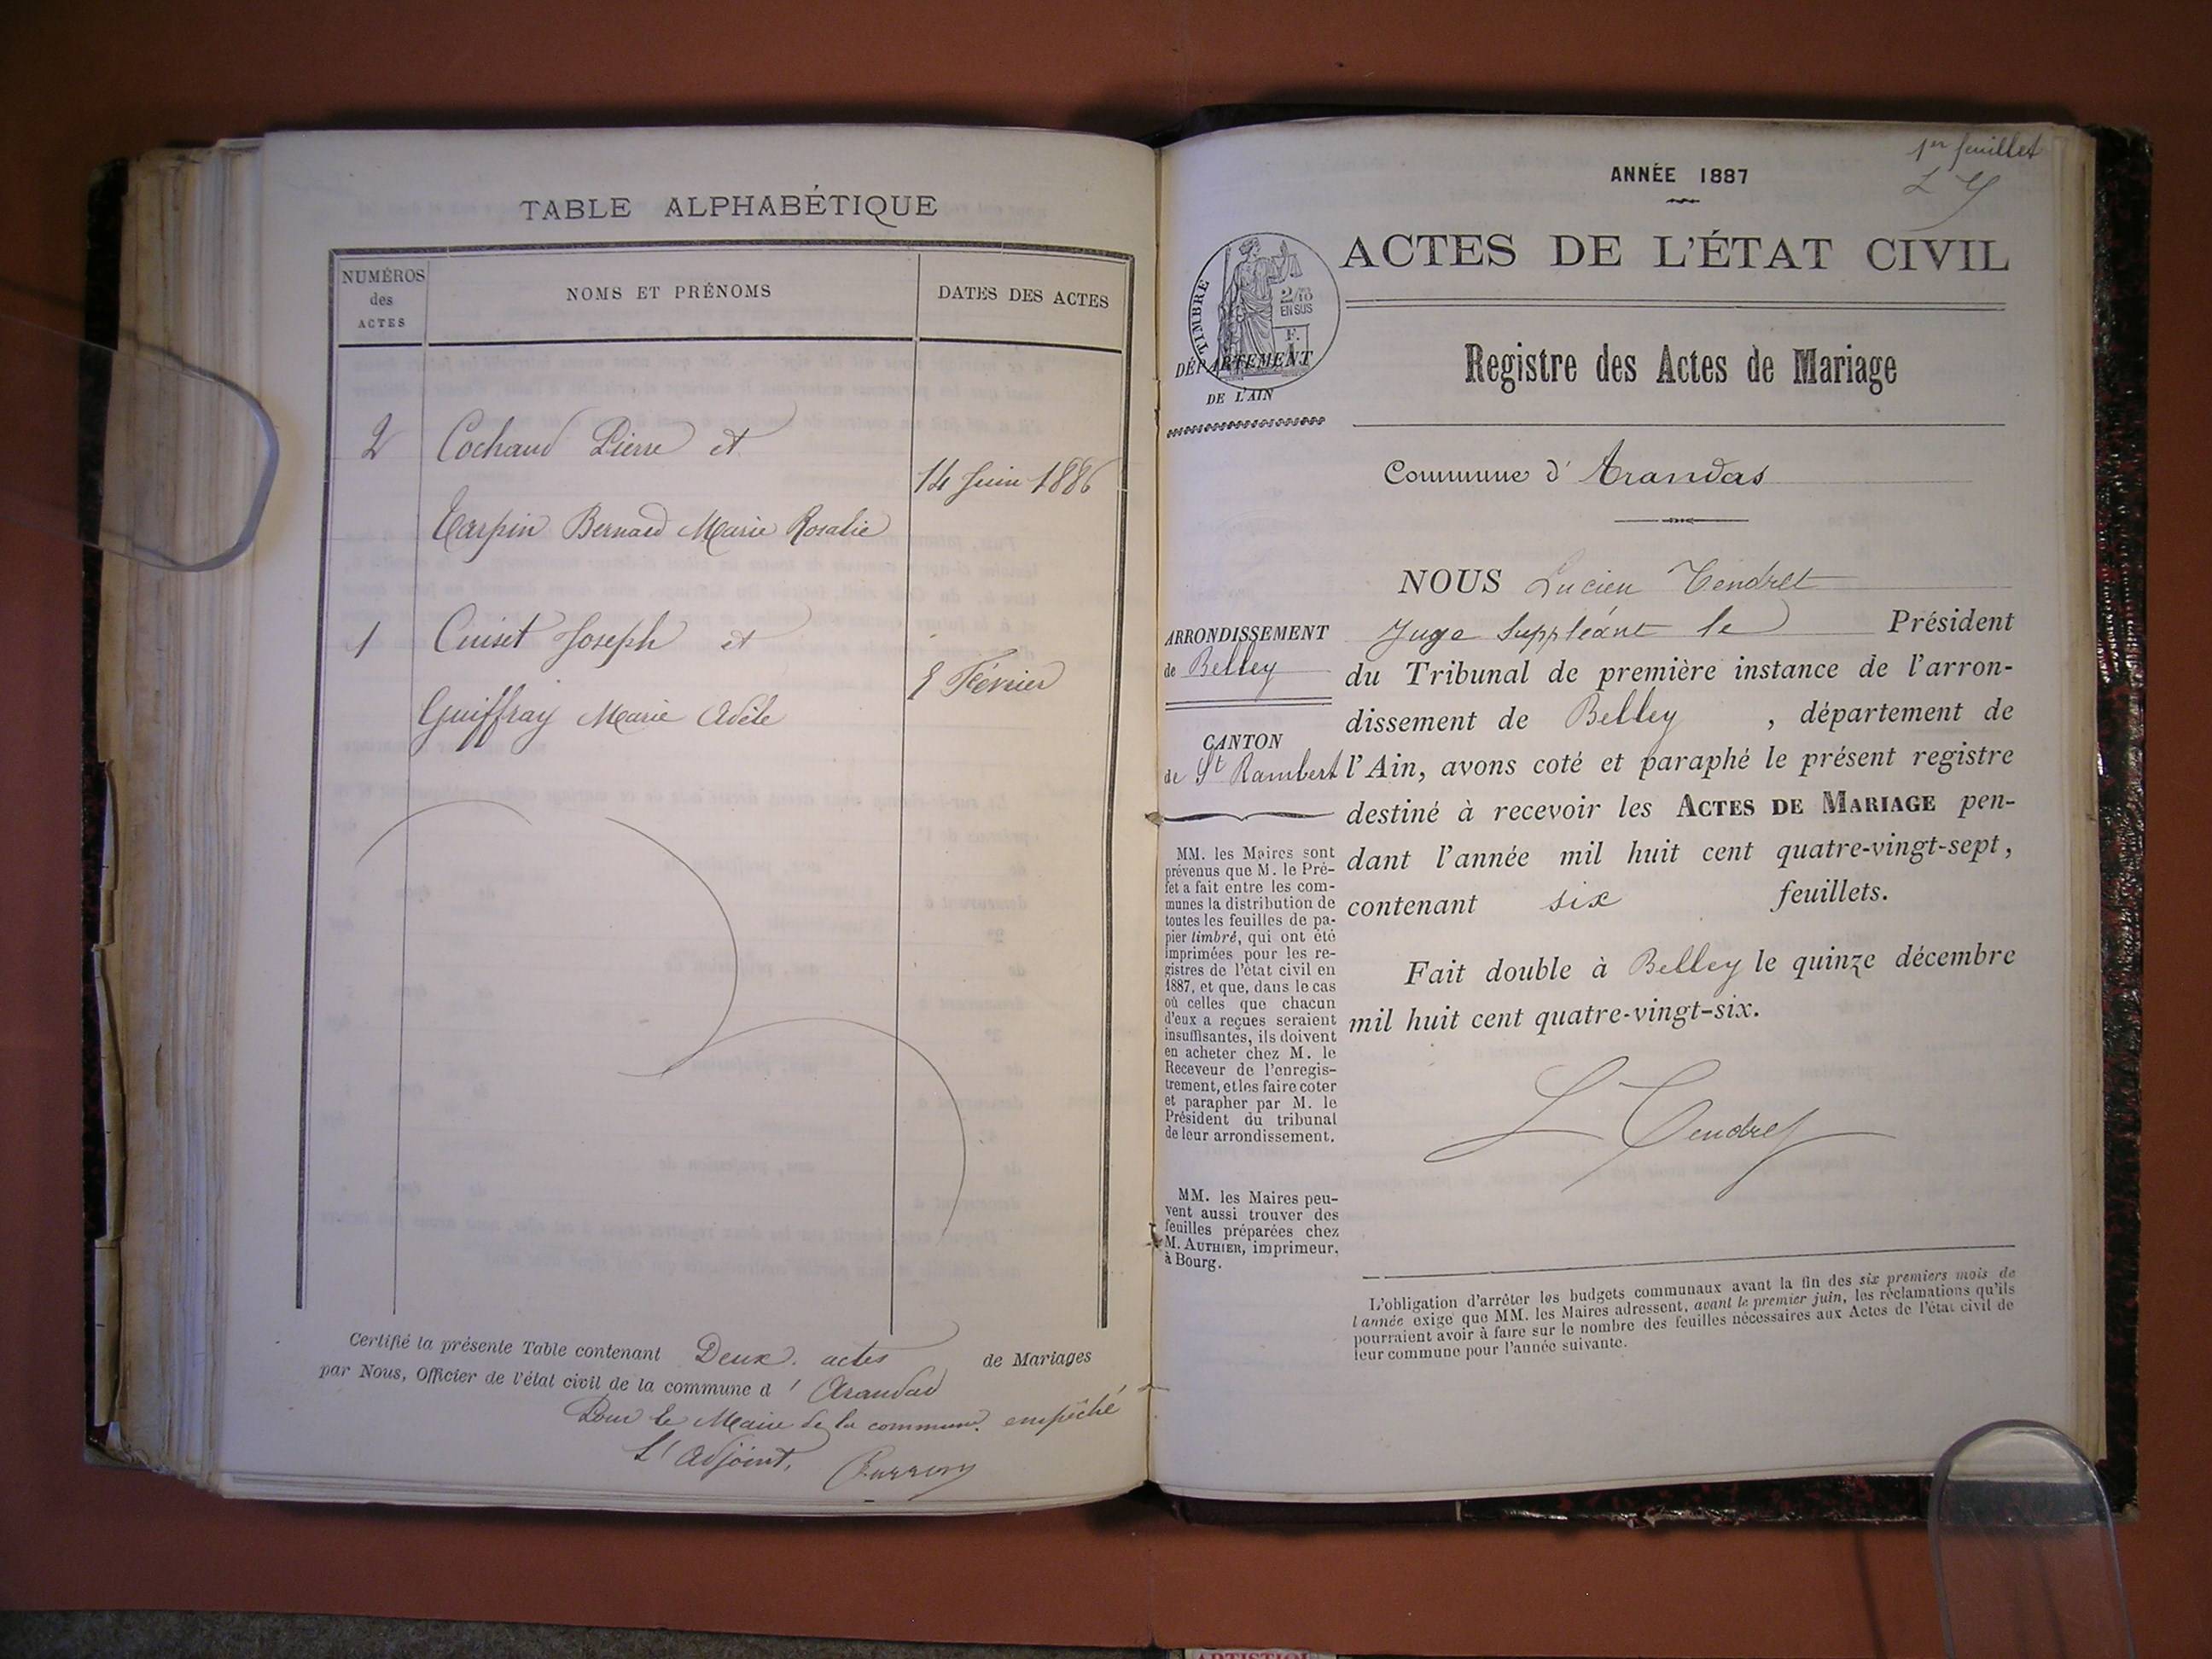 TABLE ALPHABÉTIQUE
NUMÉROS
des
ACTES
NOMS ET PRÉNOMS
DATES DES ACTES
2
Cochaud Pierre et
14 Juin 1886
Tarpin Bernard Marie Rosalie
1
Cuiset Joseph et
Février
Guiffray Marie Adèle
Certifié la présente Table contenant Deux actes de Mariages
par Nous, Officier de l'état civil de la commune d' Arandas
Pour le Maire de la commune empêché
L'Adjoint,
1er feuillet
ANNÉE 1887
ACTES DE L'ÉTAT CIVIL
TIMBRE
2/10
EN SUS
F.
DÉPARTEMENT
DE L'AIN
Registre des Actes de Mariage
Commune d' Arandas
NOUS Lucien Tendret
Juge Suppléant le Président
du Tribunal de première instance de l'arron-
dissement de Belley, département de
l'Ain, avons coté et paraphé le présent registre
destiné à recevoir les ACTES DE MARIAGE pen-
dant l'année mil huit cent quatre-vingt-sept,
contenant six feuillets.
Fait double à Belley le quinze décembre
mil huit cent quatre-vingt-six.
L Tendret
ARRONDISSEMENT
de Belley
CANTON
de St Rambert
MM. les Maires sont
prévenus que M. le Pré-
fet a fait entre les com-
munes la distribution de
toutes les feuilles de pa-
pier timbré, qui ont été
imprimées pour les re-
gistres de l'état civil en
1887, et que, dans le cas
où celles que chacun
d'eux a reçues seraient
insuffisantes, ils doivent
en acheter chez M. le
Receveur de l'enregis-
trement, et les faire coter
et parapher par M. le
Président du tribunal
de leur arrondissement.
MM. les Maires peu-
vent aussi trouver des
feuilles préparées chez
M. AUTHIER, imprimeur,
à Bourg.
L'obligation d'arrêter les budgets communaux avant la fin des six premiers mois de
l'année exige que MM. les Maires adressent, avant le premier juin, les réclamations qu'ils
pourraient avoir à faire sur le nombre des feuilles nécessaires aux Actes de l'état civil de
leur commune pour l'année suivante.